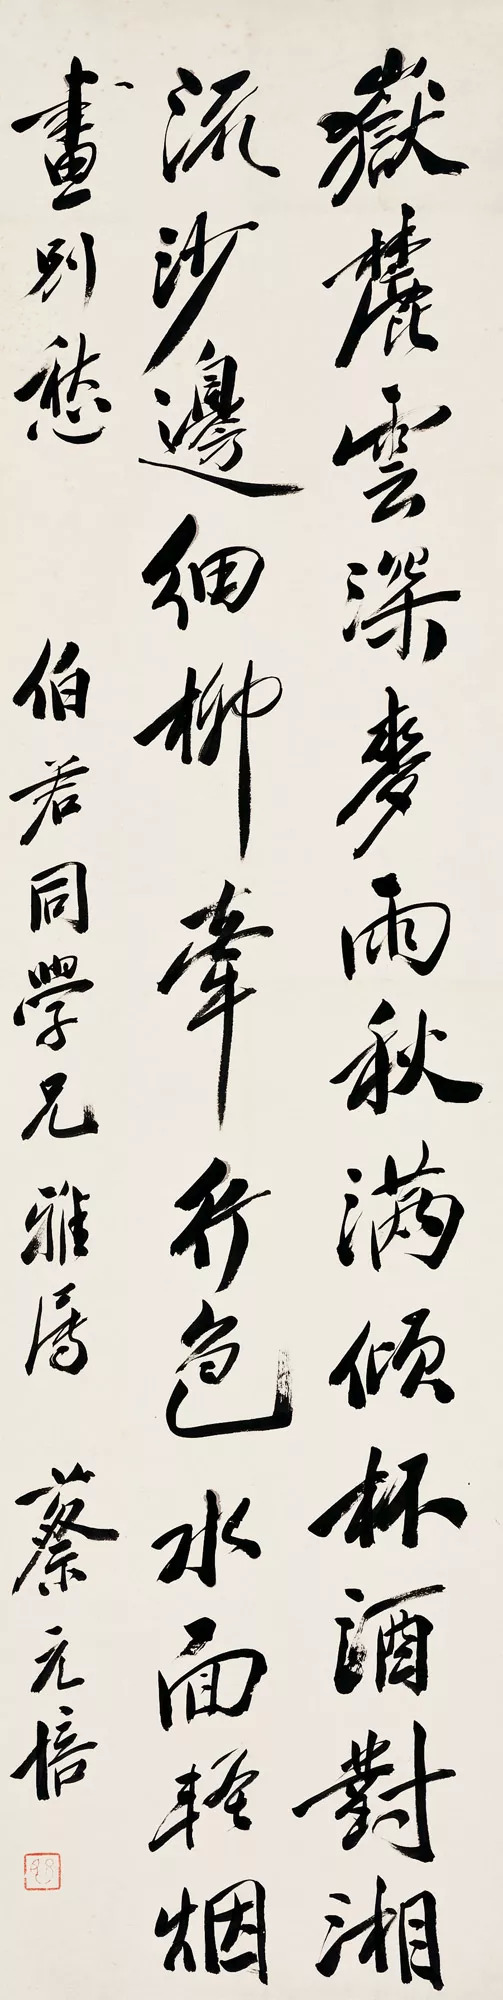 嶽麓雲深麥雨秋滿傾杯酒對湘
流沙邊細柳牽行色水面輕烟
畫別愁
伯若同學兄雅屬
蔡元培